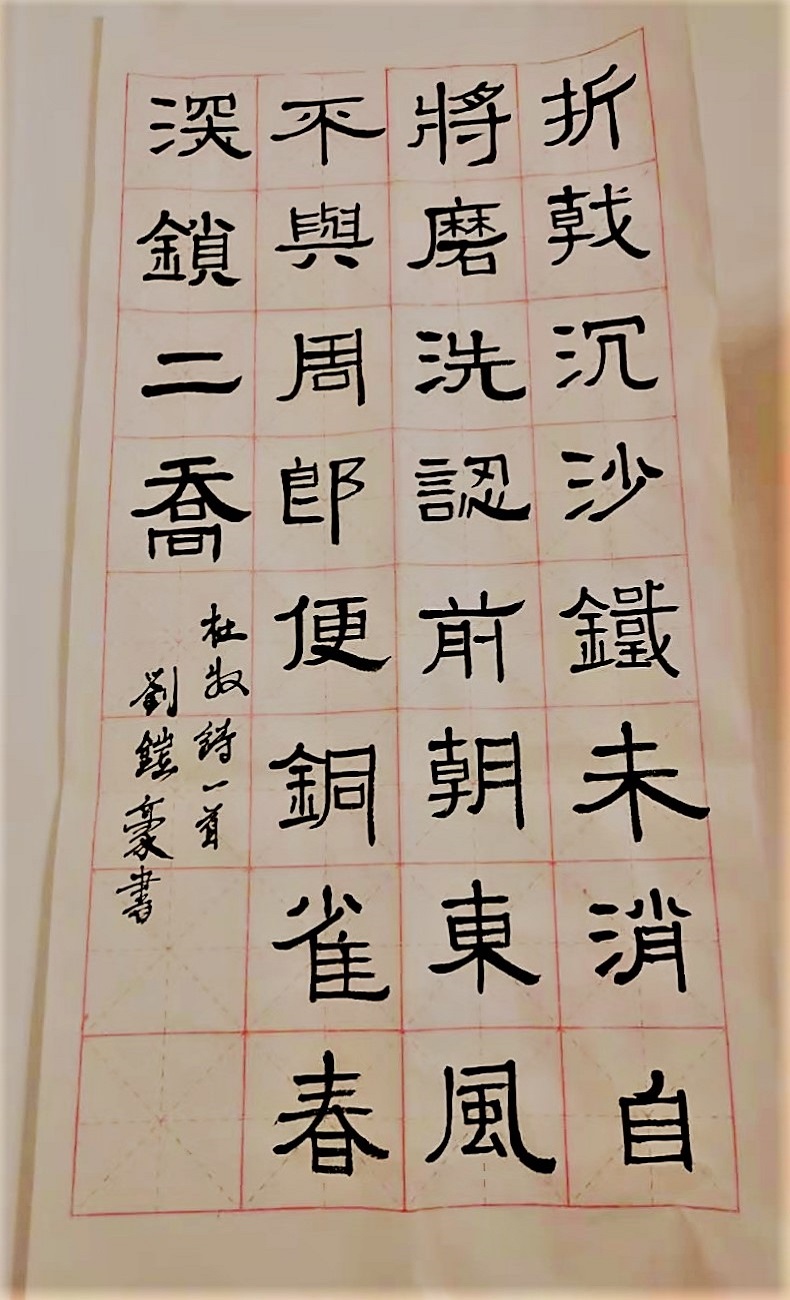 折戟沉沙鐵未消自
將磨洗認前朝東風
不與周郎便銅雀春
深鎖二喬
杜牧詩一首
劉鎧豪書